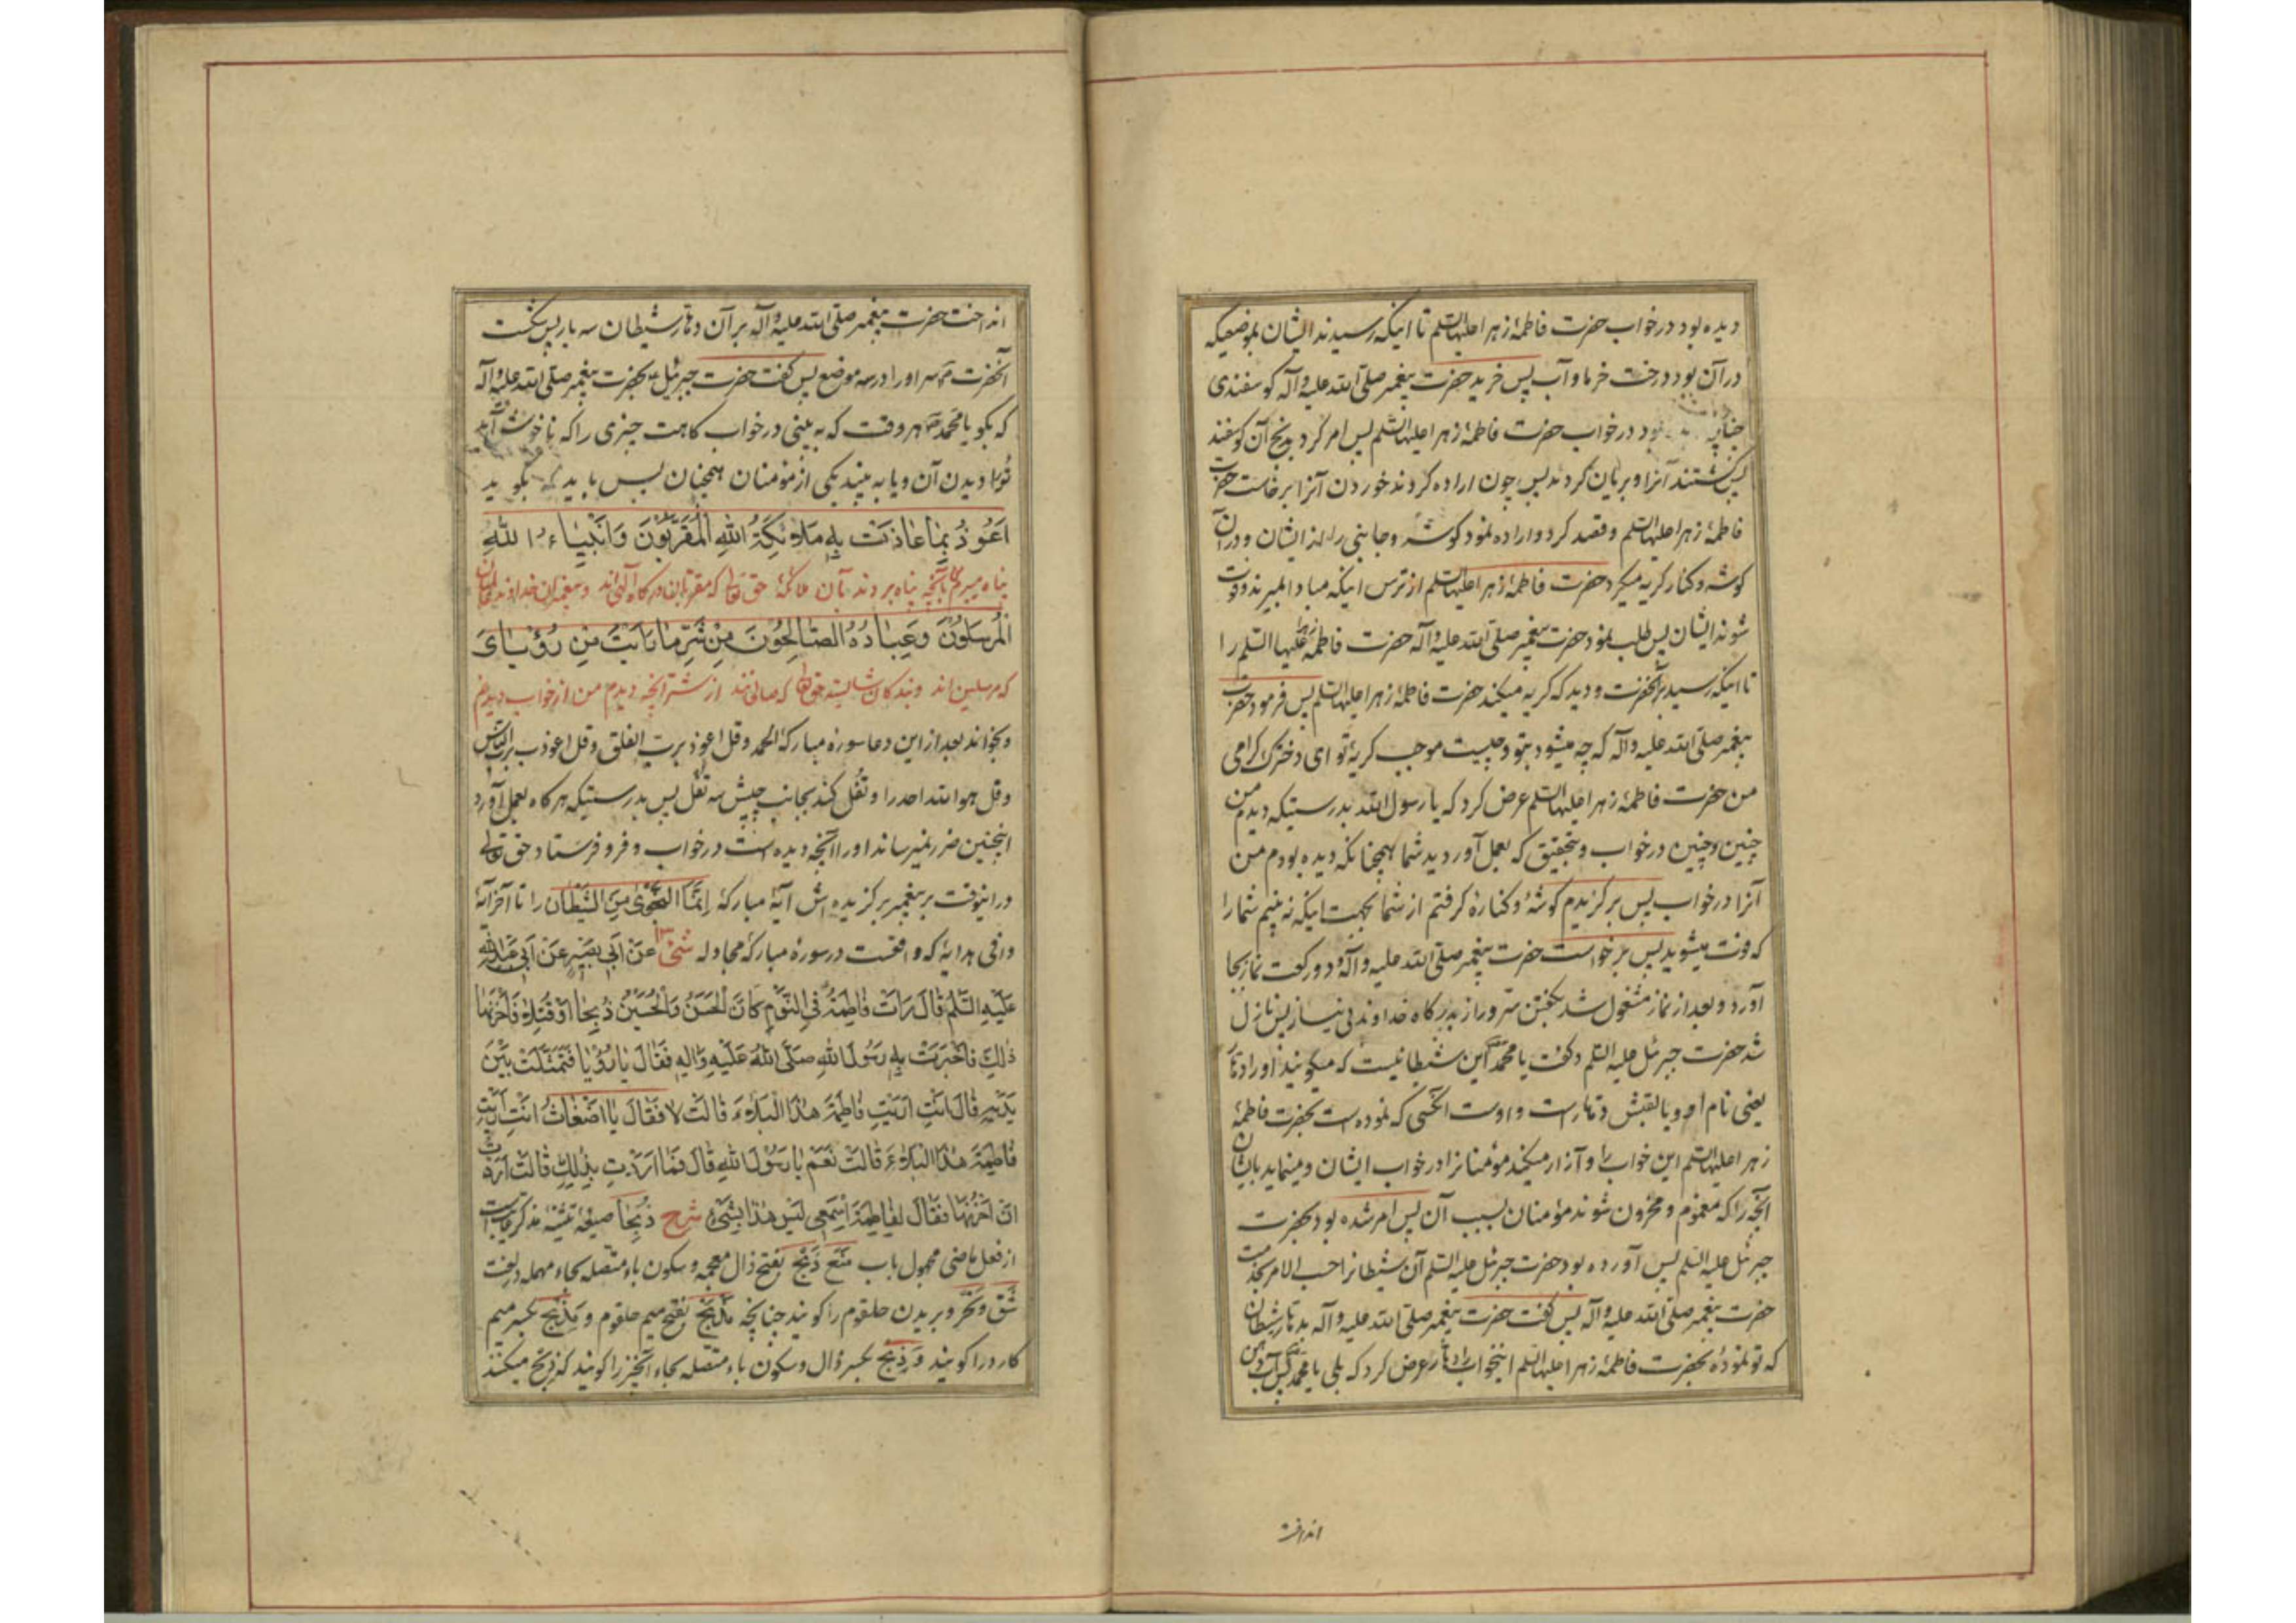 دیده بود در خواب حضرت فاطمهٔ زهرا علیها السلم تا اینکه رسیدند ایشان بموضعیکه
در آن بود درخت خرما و آب پس خرید حضرت پیغمبر صلی الله علیه و آله کوسفندی
چنانچه بود در خواب حضرت فاطمهٔ زهرا علیها السلم پس امر کرد بذبح آن کوسفند
پس کشتند آنرا و بریان کردند پس چون اراده کردند خوردن آنرا برخاست حضرت
فاطمهٔ زهرا علیها السلم و قصد کرد و اراده نمود کوشه و جانبی را از ایشان و در آن
کوشه و کنار کریه میکرد حضرت فاطمهٔ زهرا علیها السلم از ترس اینکه مبادا بمیرند و فوت
شوند ایشان پس طلب نمود حضرت پیغمبر صلی الله علیه و آله حضرت فاطمه علیها السلم را
تا اینکه رسید بر آنحضرت و دید که کریه میکند حضرت فاطمهٔ زهرا علیها السلم پس فرمود حضرت
پیغمبر صلی الله علیه و آله که چه میشود بتو و چیست موجب کریهٔ تو ای دخترک کرامی
من حضرت فاطمهٔ زهرا علیها السلم عرض کرد که یا رسول الله بدرستیکه دیدم من
چنین و چنین در خواب و بتحقیق که بعمل آوردید شما همچنانکه دیده بودم من
آنرا در خواب پس برکزیدم کوشهٔ و کنارهٔ کرفتم از شما بجهت اینکه نه بینم شما را
که فوت میشوید پس برخواست حضرت پیغمبر صلی الله علیه و آله و دو رکعت نماز بجا
آورد و بعد از نماز مشغول شد بکفتن سر و راز بدرکاه خداوند بی نیاز پس نازل
شد حضرت جبرئل علیه السلم و کفت یا محمد این شیطانیست که میکویند او را دهار
یعنی نام او و یا لقبش دهار است و اوست آنکسی که نموده است بحضرت فاطمهٔ
زهرا علیها السلم این خواب را و آزار میکند مؤمنانرا در خواب ایشان و مینماید بایشان
آنچه را که مغموم و محزون شوند مؤمنان بسبب آن پس امر شده بود بحضرت
جبرئل علیه السلم پس آورده بود حضرت جبرئل علیه السلم آن شیطانرا حسب الامر بخدمت
حضرت پیغمبر صلی الله علیه و آله پس کفت حضرت پیغمبر صلی الله علیه و آله بدهار شیطان
که تو نمودهٔ بحضرت فاطمهٔ زهرا علیها السلم اینخواب را دهار عرض کرد که بلی یا محمد پس آب دهن
انداخت
انداخت حضرت پیغمبر صلی الله علیه و آله بر آن دهار شیطان سه بار پس شکست
آنحضرت سر او را در سه موضع پس کفت حضرت جبرئل بحضرت پیغمبر صلی الله علیه و آله
که بکو یا محمد هر وقت که به بینی در خواب کاهت چیزی را که ناخوش آید
تو را دیدن آن و یا به بیند یکی از مؤمنان همچنان پس باید که بکوید
اَعُوذُ بِمَا عَاذَتْ بِهِ مَلَائِكَةُ اللهِ الْمُقَرَّبُونَ وَاَنْبِیَاءُ اللهِ
پناه میبرم بآنچه پناه بردند بآن ملائکهٔ حق تعالی که مقربان درکاه الهی اند و پیغمبران خداوند
الْمُرْسَلُونَ وَعِبَادُهُ الصَّالِحُونَ مِنْ شَرِّ مَا رَاَیْتُ مِنْ رُؤْیَایَ
که مرسلین اند و بندکان شایستهٔ حق تعالی که صالحانند از شر آنچه دیدم من از خواب دیدنم
و بخواند بعد از این دعا سورهٔ مبارکهٔ الحمد و قل اعوذ برب الفلق و قل اعوذ برب الناس
و قل هو الله احد را و تفل کند بجانب چپش سه تفل پس بدرستیکه هر کاه بعمل آورد
اینچنین ضرر نمیرساند او را آنچه دیده است در خواب و فرو فرستاد حق تعالی
در اینوقت بر پیغمبر برکزیده اش آیهٔ مبارکهٔ اِنَّمَا النَّجْوٰی مِنَ الشَّیْطَانِ را تا آخر آیهٔ
وافی هدایه که واقعست در سورهٔ مبارکهٔ مجادله عَنْ اَبِی بَصِیرٍ عَنْ اَبِی عَبْدِ اللهِ
عَلَیْهِ السَّلَمُ قَالَ رَاَتْ فَاطِمَةُ فِی النَّوْمِ کَانَ الْحَسَنُ وَالْحُسَیْنُ ذُبِحَا اَوْ قُتِلَا فَاَحْزَنَهَا
ذٰلِكَ فَاَخْبَرَتْ بِهِ رَسُولَ اللهِ صَلَّی اللهُ عَلَیْهِ وَاٰلِهِ فَقَالَ یَا رُؤْیَا فَتَمَثَّلَتْ بَیْنَ
یَدَیْهِ قَالَ اَنْتِ اَرَیْتِ فَاطِمَةَ هٰذَا الْبَلَاءَ قَالَتْ لَا فَقَالَ یَا اَضْغَاثُ اَنْتِ اَرَیْتِ
فَاطِمَةَ هٰذَا الْبَلَاءَ قَالَتْ نَعَمْ یَا رَسُولَ اللهِ قَالَ فَمَا اَرَدْتِ بِذٰلِكِ قَالَتْ اَرَدْتُ
اَنْ اَحْزُنَهَا فَقَالَ لِفَاطِمَةَ اِسْمَعِی لَیْسَ هٰذَا بِشَیْءٍ شرح ذُبِحَا صیغهٔ تثنیهٔ مذکر غایب است
از فعل ماضی مجهول باب مَنَعَ ذَبْح بفتح ذال معجمه و سکون باء متصله بحاء مهمله در لغت
شَقّ و نَحْر و بریدن حلقوم را کویند چنانچه مَذْبَح بفتح میم حلقوم و مِذْبَح بکسر میم
کارد را کویند و ذِبْح بکسر ذال و سکون باء متصله بحاء آنچیز را کویند که ذبح میکنند